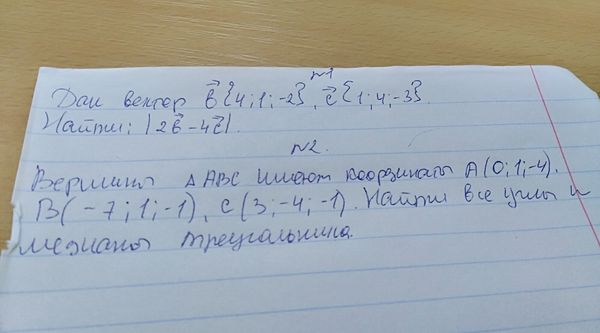 №1
Дан вектор b{4;1;-2}, c{1;4;-3}.
Найти: |2b-4c|.
№2.
Вершины △ABC имеют координаты A(0;1;-4),
B(-7;1;-1), C(3;-4;-1). Найти все углы и
медианы треугольника.